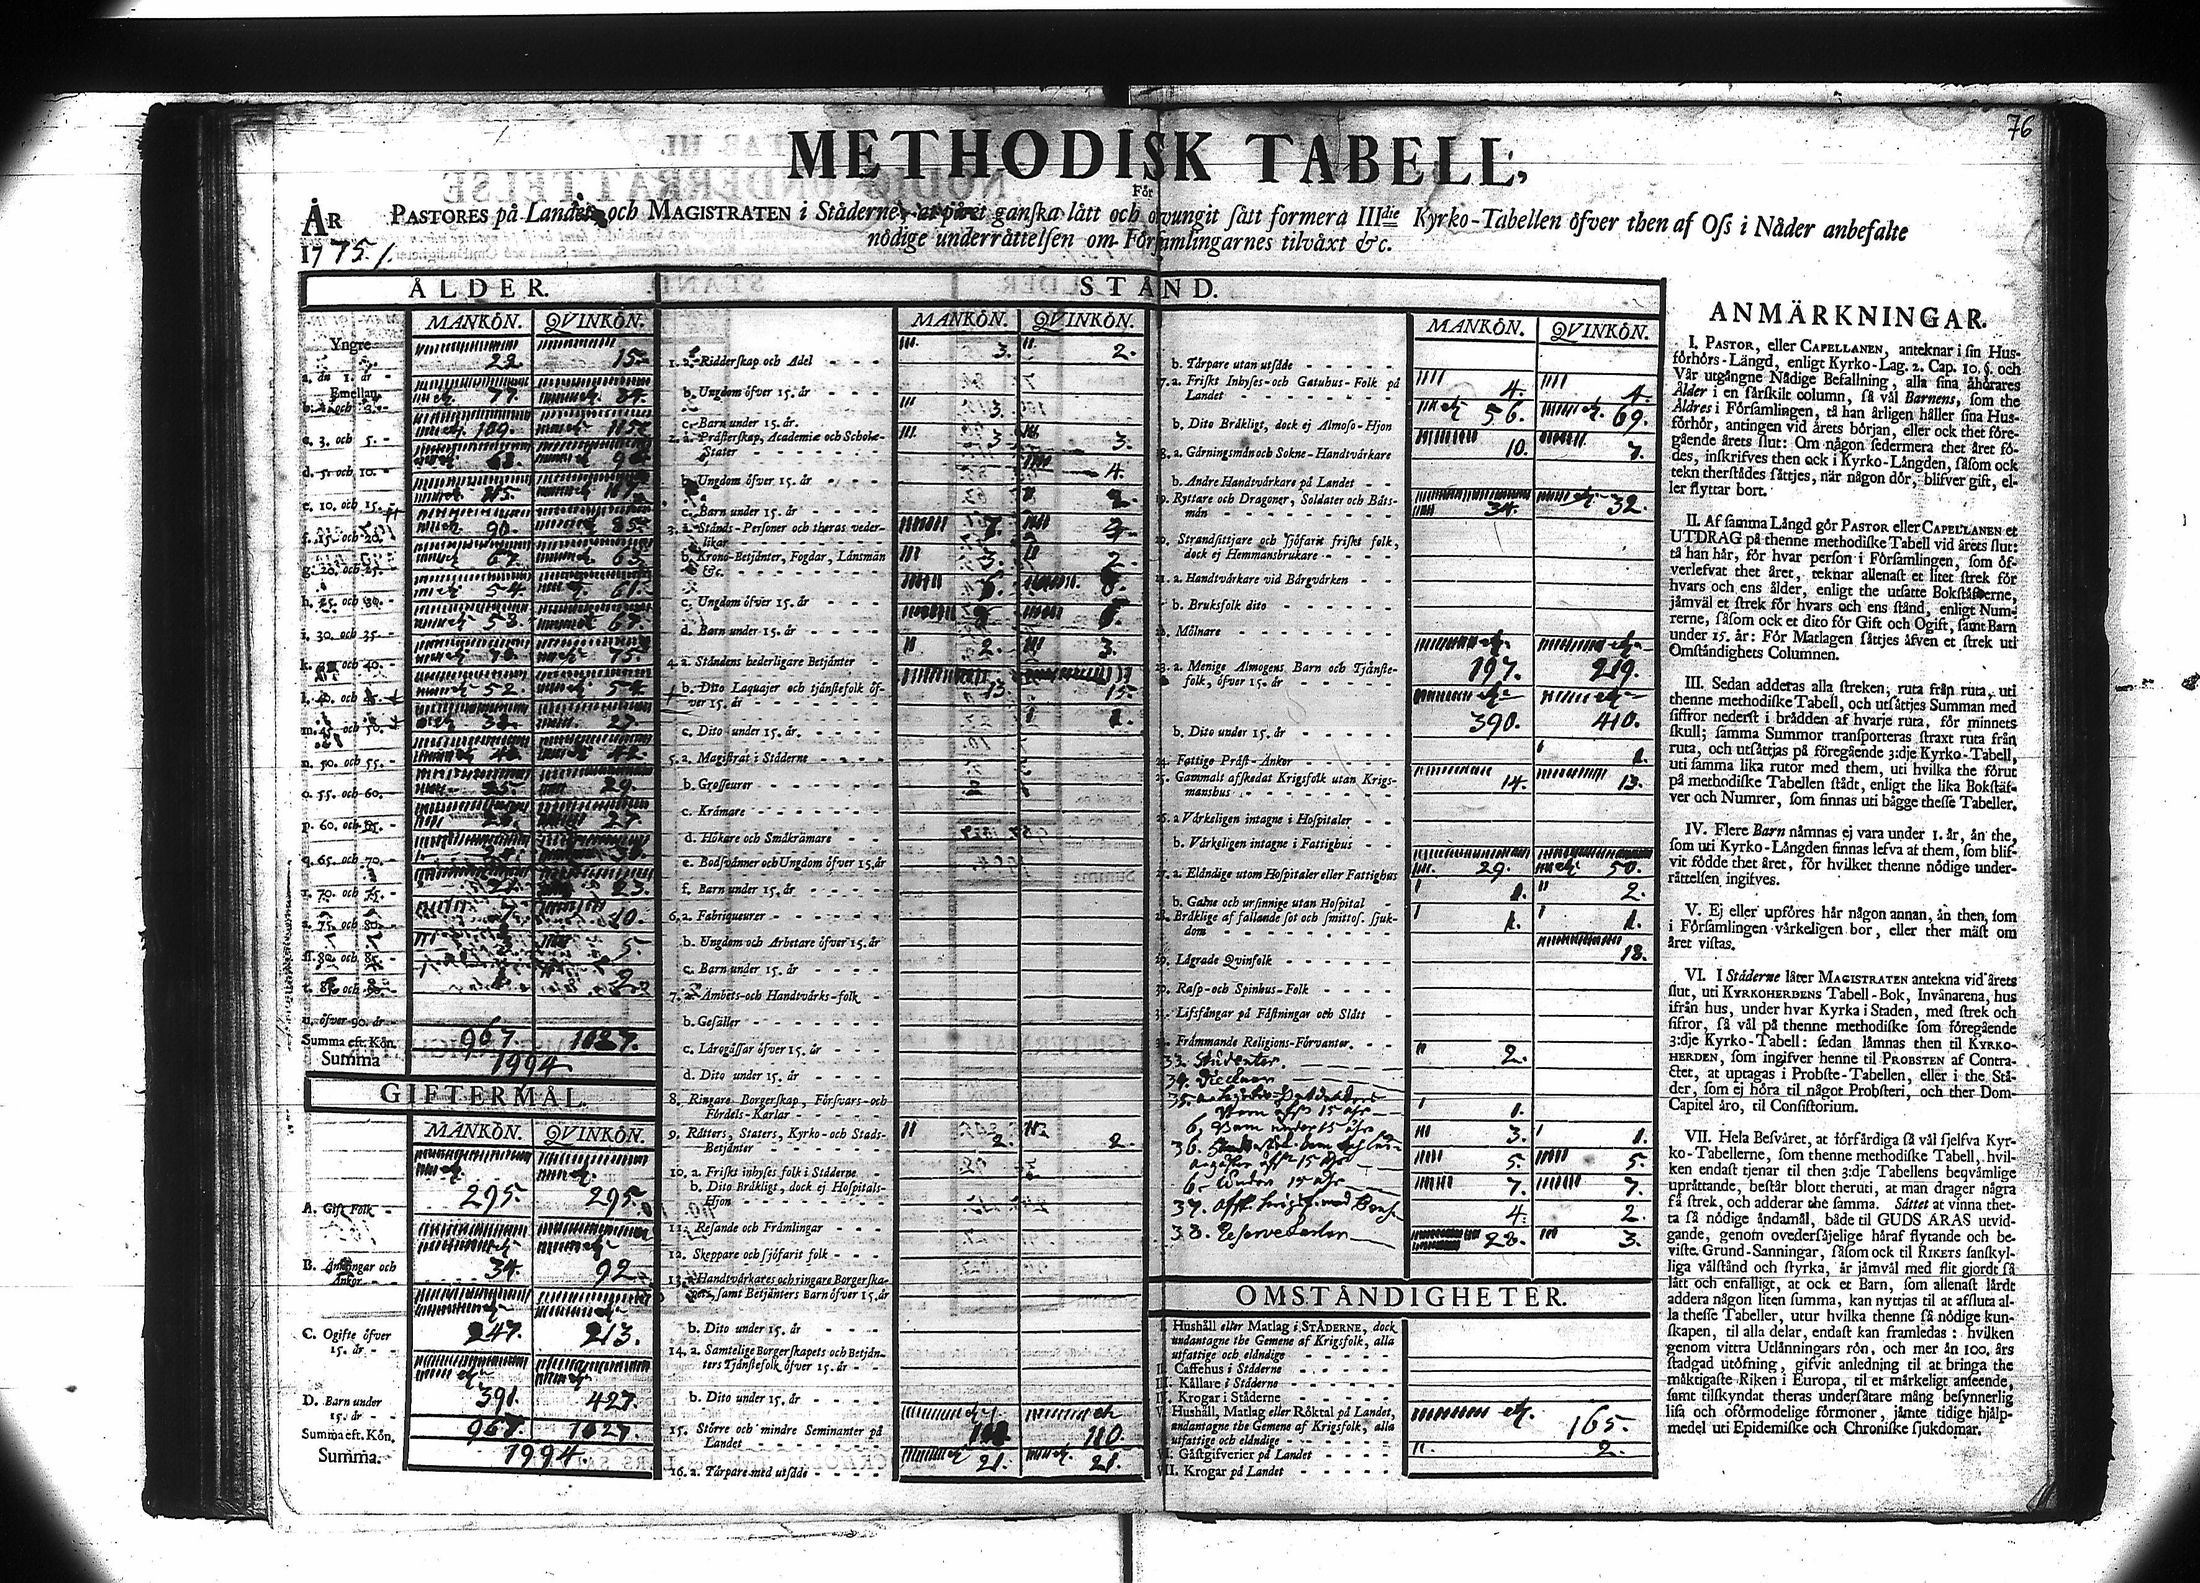 76
METHODISK TABELL,
För
ÅR PASTORES på Landet och MAGISTRATEN i Städerne, at på et ganska lätt och otvungit sätt formera IIIdie Kyrko-Tabellen öfver then af Oss i Nåder anbefalte
1775. nödige underrättelsen om Församlingarnes tilväxt &c.
ÅLDER.
MANKÖN. QVINKÖN.
Yngre
a. än 1. år - 22. 15.
Emellan
b. 1. och 3. - 77. 84.
c. 3. och 5. -
d. 5. och 10. -
e. 10. och 15. -
f. 15. och 20. 90. 85.
g. 20. och 25. - 67. 63.
h. 25. och 30. - 54. 61.
i. 30. och 35. - 58. 67.
k. 35. och 40. - 75.
l. 40. och 45. 52. 54.
m. 45. och 50. 27.
n. 50. och 55. - 42.
o. 55. och 60. - 25. 29.
p. 60. och 65. - 27.
q. 65. och 70. -
r. 70. och 75. - 23.
s. 75. och 80. - 10.
ſſ. 80. och 85. 5.
t. 85. och 90. 2.
u. öfver 90. år -
Summa eft. Kön. 967. 1027.
Summa 1994.
GIFTERMÅL.
MANKÖN. QVINKÖN.
A. Gift Folk - 295. 295.
B. Änklingar och
Änkor - - 34. 92.
C. Ogifte öfver
15. år - - 247. 213.
D. Barn under
15. år - - 391. 427.
Summa eft. Kön. 967. 1027.
Summa. 1994.
STÅND.
MANKÖN. QVINKÖN.
1. a. Ridderskap och Adel - - - 3. 2.
b. Ungdom öfver 15. år - - - - 3.
c. Barn under 15. år. - - - -
2. a. Prästerskap, Academiæ och Scholæ-
Stater - - - - - - - 3. 3.
b. Ungdom öfver 15. år - - - 4.
c. Barn under 15. år - - - - 2.
3. a. Stånds-Personer och theras veder-
likar - - - - - - - 7.
b. Krono-Betjänter, Fogdar, Länsmän
&c. - - - - - - - 3. 2.
c. Ungdom öfver 15. år - - - - 6. 8.
d. Barn under 15. år - - - -
4. a. Ståndens hederligare Betjänter - 2. 3.
b. Dito Laquajer och tjänstefolk öf-
ver 15. år - - - - - - 13. 15.
c. Dito under 15. år. - - - - 1.
5. a. Magistrat i Städerne - - - -
b. Grosseurer - - - - - -
c. Krämare - - - - - -
d. Hökare och Småkrämare - - -
e. Bodsvänner och Ungdom öfver 15. år
f. Barn under 15. år - - - -
6. a. Fabriqueurer - - - - - -
b. Ungdom och Arbetare öfver 15. år
c. Barn under 15. år - - - -
7. a. Ämbets-och Handtvärks-folk -
b. Gesäller - - - - - - -
c. Lärogåssar öfver 15. år - - -
d. Dito under 15. år - - - -
8. Ringare Borgerskap, Försvars-och
Fördels-Karlar - - - - -
9. Rätters, Staters, Kyrko-och Stads-
Betjänter - - - - - - 2. 2.
10. a. Friskt inhyses folk i Städerne -
b. Dito Bräkligt, dock ej Hospitals-
Hjon - - - - - - -
11. Resande och Främlingar - - -
12. Skeppare och sjöfarit folk - - -
13. a. Handtvärkares och ringare Borgerska-
pets, samt Betjänters Barn öfver 15. år
b. Dito under 15. år - - - -
14. a. Samtelige Borgerskapets och Betjän-
ters Tjänstefolk öfver 15. år - - -
b. Dito under 15. år - - - -
15. Större och mindre Seminanter på
Landet - - - - - - - 110.
16. a. Tårpare med utsäde - - - - 21. 21.
MANKÖN. QVINKÖN.
b. Tårpare utan utsäde - - - - -
17. a. Friskt Inhyses-och Gatuhus-Folk på
Landet - - - - - - - 4. 4.
b. Dito Bräkligt, dock ej Almoso-Hjon 56. 69.
18. a. Gärningsmän och Sokne-Handtvärkare 10. 7.
b. Andre Handtvärkare på Landet - -
19. Ryttare och Dragoner, Soldater och Båts-
män - - - - - - - - 34. 32.
20. Strandsittjare och Sjöfarit friskt folk,
dock ej Hemmansbrukare - - - -
21. a. Handtvärkare vid Bärgvärken - -
b. Bruksfolk dito - - - - - -
22. Mölnare - - - - - - - -
23. a. Menige Almogens Barn och Tjänste-
folk, öfver 15. år - - - - - 197. 219.
b. Dito under 15. år - - - - - 390. 410.
24. Fattige Präst-Änkor - - - - - 1.
25. Gammalt afskedat Krigsfolk utan Krigs-
manshus - - - - - - - 14. 13.
26. a Värkeligen intagne i Hospitaler - -
b. Värkeligen intagne i Fattighus - -
27. a. Eländige utom Hospitaler eller Fattighus 29. 50.
b. Galne och ursinnige utan Hospital - 1. 2.
28. Bräklige af fallande sot och smittos. sjuk-
dom - - - - - - - - 1. 1.
29. Lägrade Qvinfolk - - - - - - 18.
30. Rasp-och Spinhus-Folk - - - -
31. Lifsfångar på Fästningar och Slått -
32. Främmande Religions-Förvanter. - -
33. Studenter. 2.
34.
35.
Barn öfr 15 åhr 1.
6. Barn under 15 åhr 3. 1.
36.
öfr 15 åhr 5. 5.
6. under 15 åhr 7. 7.
37. 4. 2.
38. Reservekarlar 28. 3.
OMSTÄNDIGHETER.
I. Hushåll eller Matlag i STÄDERNE, dock
undantagne the Gemene af Krigsfolk, alla
utfattige och eländige - - - - -
II. Caffehus i Städerne - - - - -
III. Källare i Städerne - - - - -
IV. Krogar i Städerne - - - -
V. Hushåll, Matlag eller Röktal på Landet,
undantagne the Gemene af Krigsfolk, alla
utfattige och eländige - - - - - 165.
VI. Gästgifverier på Landet - - - - 2.
VII. Krogar på Landet - - - - -
ANMÄRKNINGAR.
I. PASTOR, eller CAPELLANEN, anteknar i sin Hus-
förhörs-Längd, enligt Kyrko-Lag. 2. Cap. 10. §. och
Vår utgångne Nådige Befallning, alla sina åhörares
Ålder i en särskilt column, så väl Barnens, som the
Äldres i Församlingen, tå han årligen håller sina Hus-
förhör, antingen vid årets början, eller ock thet före-
gående årets slut: Om någon sedermera thet året fö-
des, inskrifves then ock i Kyrko-Längden, såsom ock
tekn therstädes sättjes, när någon dör, blifver gift, el-
ler flyttar bort.
II. Af samma Längd gör PASTOR eller CAPELLANEN et
UTDRAG på thenne methodiske Tabell vid årets slut:
tå han här, för hvar person i Församlingen, som öf-
verlefvat thet året, teknar allenast et litet strek för
hvars och ens ålder, enligt the utsatte Bokstäfverne,
jämväl et strek för hvars och ens stånd, enligt Num-
rerne, såsom ock et dito för Gift och Ogift, samt Barn
under 15. år: För Matlagen sättjes äfven et strek uti
Omständighets Columnen.
III. Sedan adderas alla streken, ruta från ruta, uti
thenne methodiske Tabell, och utsättjes Summan med
siffror nederst i brädden af hvarje ruta, för minnets
skull; samma Summor transporteras straxt ruta från
ruta, och utsättjas på föregående 3:dje Kyrko-Tabell,
uti samma lika rutor med them, uti hvilka the förut
på methodiske Tabellen stådt, enligt the lika Bokstäf-
ver och Numrer, som finnas uti bägge thesse Tabeller.
IV. Flere Barn nämnas ej vara under 1. år, än the,
som uti Kyrko-Längden finnas lefva af them, som blif-
vit födde thet året, för hvilket thenne nödige under-
rättelsen ingifves.
V. Ej eller upföres här någon annan, än then, som
i Församlingen värkeligen bor, eller ther mäst om
året vistas.
VI. I Städerne låter MAGISTRATEN antekna vid årets
slut, uti KYRKOHERDENS Tabell-Bok, Invånarena, hus
ifrån hus, under hvar Kyrka i Staden, med strek och
sifror, så väl på thenne methodiske som föregående
3:dje Kyrko-Tabell: sedan lämnas then til KYRKO-
HERDEN, som ingifver henne til PROBSTEN af Contra-
ctet, at uptagas i Probste-Tabellen, eller i the Stä-
der, som ej höra til något Probsteri, och ther Dom-
Capitel äro, til Consistorium.
VII. Hela Besväret, at förfärdiga så väl sjelfva Kyr-
ko-Tabellerne, som thenne methodiske Tabell, hvil-
ken endast tjenar til then 3:dje Tabellens beqvämlige
uprättande, består blott theruti, at man drager några
få strek, och adderar the samma. Sättet at vinna thet-
ta så nödige ändamål, både til GUDS ÄRAS utvid-
gande, genom ovedersäjelige häraf flytande och be-
viste Grund-Sanningar, såsom ock til RIKETS sanskyl-
liga välstånd och styrka, är jämväl med flit gjordt så
lätt och enfalligt, at ock et Barn, som allenast lärdt
addera någon liten summa, kan nyttjas til at afsluta al-
la thesse Tabeller, utur hvilka thenne så nödige kun-
skapen, til alla delar, endast kan framledas: hvilken
genom vittra Utlänningars rön, och mer än 100. års
stadgad utöfning, gifvit anledning til at bringa the
mäktigaste Riken i Europa, til et märkeligt anseende,
samt tilskyndat theras undersåtare mång besynnerlig
lisa och oförmodelige förmoner, jämte tidige hjälp-
medel uti Epidemiske och Chroniske sjukdomar.